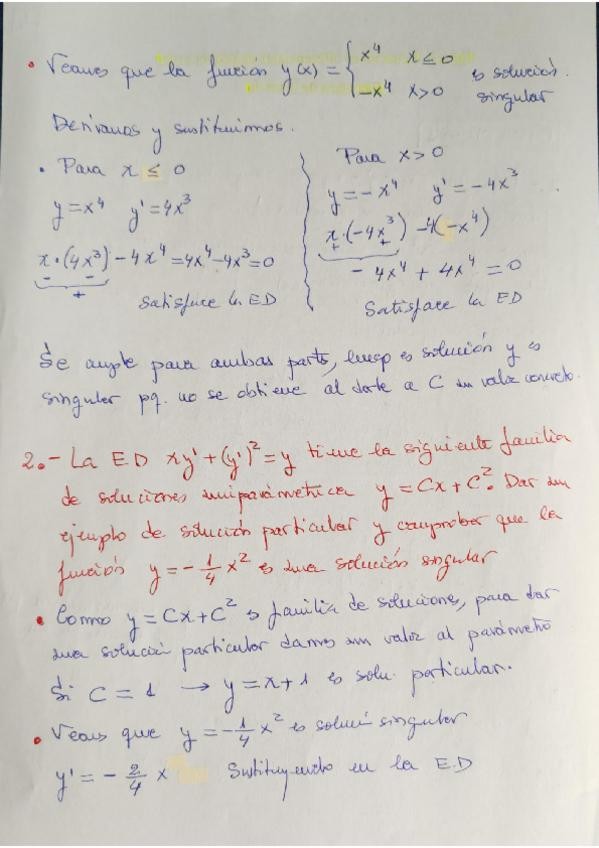 • Veamos que la función y(x) = { x⁴ x ≤ 0
−x⁴ x > 0 es solución singular
Derivamos y sustituimos.
• Para x ≤ 0
y = x⁴ y' = 4x³
x·(4x³) − 4x⁴ = 4x⁴ − 4x³ = 0
− −
+
Satisface la ED
Para x > 0
y = −x⁴ y' = −4x³
x·(−4x³) −4(−x⁴)
+ +
− 4x⁴ + 4x⁴ = 0
Satisface la ED
Se cumple para ambas partes, luego es solución y es
singular pq. no se obtiene al darle a C un valor concreto.
2.- La ED xy' + (y')² = y tiene la siguiente familia
de soluciones uniparamétrica y = Cx + C². Dar un
ejemplo de solución particular y comprobar que la
función y = − 1/4 x² es una solución singular
• Como y = Cx + C² es familia de soluciones, para dar
una solución particular damos un valor al parámetro
Si C = 1 → y = x + 1 es solu. particular.
• Veamos que y = − 1/4 x² es solución singular
y' = − 2/4 x Sustituyendo en la E.D